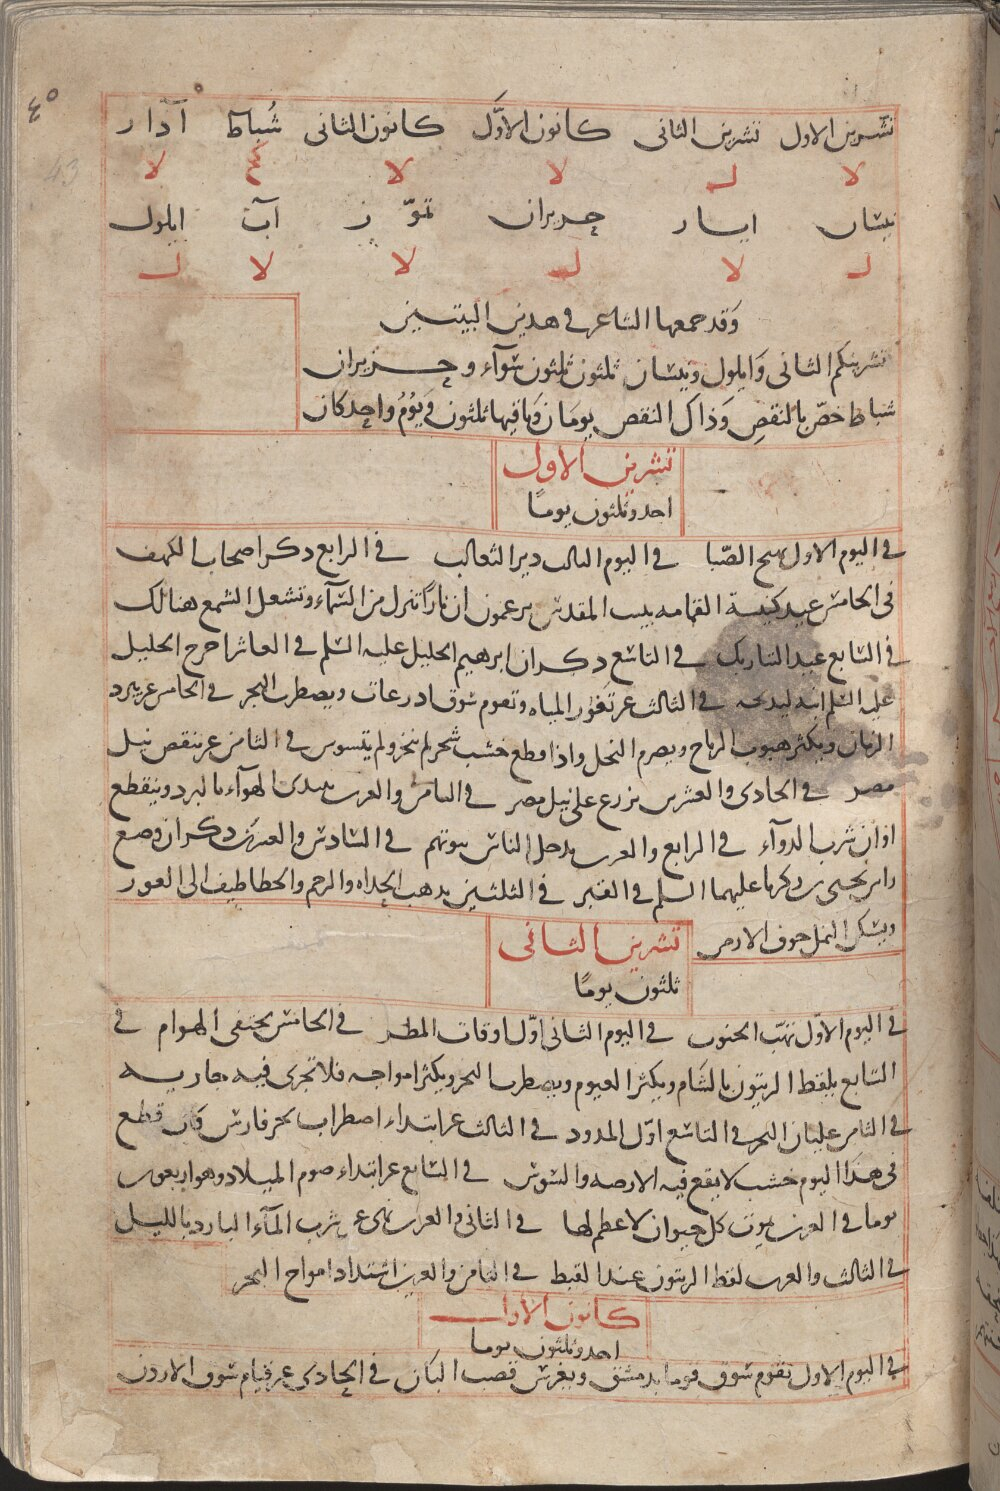 ٤٥
43
تشرين الاول تشرين الثانى كانون الاوّل كانون الثانى شُباط آدار
لا ل لا لا كح لا
نيسان ايار حزيران تموّز آب ايلول
ل لا ل لا لا ل
وَقد جمعها الشاعر فى هذين البيتين
تشرينكم الثانى وَايلول ونيسان ثلثون ثلثون سَوآء وحزيران
شباط خصّ بالنقصِ وَذاك النقص يومَان وَباقيها ثلثون وَيَوْمُ واحد كان
تشرين الاول
احد وثلثون يومًا
فى اليوم الاول تهيج الصّبا فى اليوم الثالث دير الثعالب فى الرابع ذكر اصحاب الكهف
فى الخامس عيد كنيسة القمامه ببيت المقدس يزعمون ان نارًا تنزل من السّمآء وتشعل الشمع هنالك
فى السّابع عيد التبَاريك فى التاسع ذكران ابرهيم الخليل عليه السّلم فى العاشر اخرج الخليل
عليه السّلم ابنه ليذبحه فى الثالث عشر تغور المياه وتقوم سُوق اذرعات ويضطرب البحر فى الخامس عشر يبرد
الزمان ويكثر هبوب الرياح ويصرم النخل واذا قطع خشب شجر لم ينخر ولم يتسوس فى الثامن عشر ينقص نيل
مصر فى الحادى والعشرين يزرع على نيل مصر فى الثامن والعشرين يبتدئ الهوآء بالبرد وينقطع
اوان شرب الدوآء فى الرابع والعشرين يدخل الناس بيوتهم فى السّادس والعشرين ذكران وضع
راس يحيى بن زكريا عليهما السلم فى القبر فى الثلثين يذهب الحداه والرخم والخطاطيف الى الغور
ويسكن النمل جوف الارض
تشرين الثانى
ثلثون يومًا
فى اليوم الاوّل تهبّ الجنوب فى اليوم الثانى اوّل اوقات المطر فى الخامس يختفى الهوام فى
السّابع يلقط الزيتون بالشام ويكثر الغيوم ويضطرب البحر ويكثر امواجه فلا تجرى فيه جاريه
فى الثامن غليان البحر فى التاسع اوّل المدود فى الثالث عشر ابتداء اضطراب بحر فارس وَان قطع
فى هذا اليوم خشب لا يقع فيه الارضه والسّوس فى السّابع عشر ابتداء صوم الميلاد وهو اربعون
يوما فى العشرين يموت كل حيوان لا عظم لها فى الثانى والعشرين نهى عن شرب المآء البارد بالليل
فى الثالث والعشرين لقط الزيتون عند القبط فى الثامن والعشرين اشتداد امواج البحر
كانون الاول
احد وثلثون يوما
فى اليوم الاول تقوم سُوق توما بدمشق ويغرس قصب البان فى الحادى عشر قيام سُوق الاردن